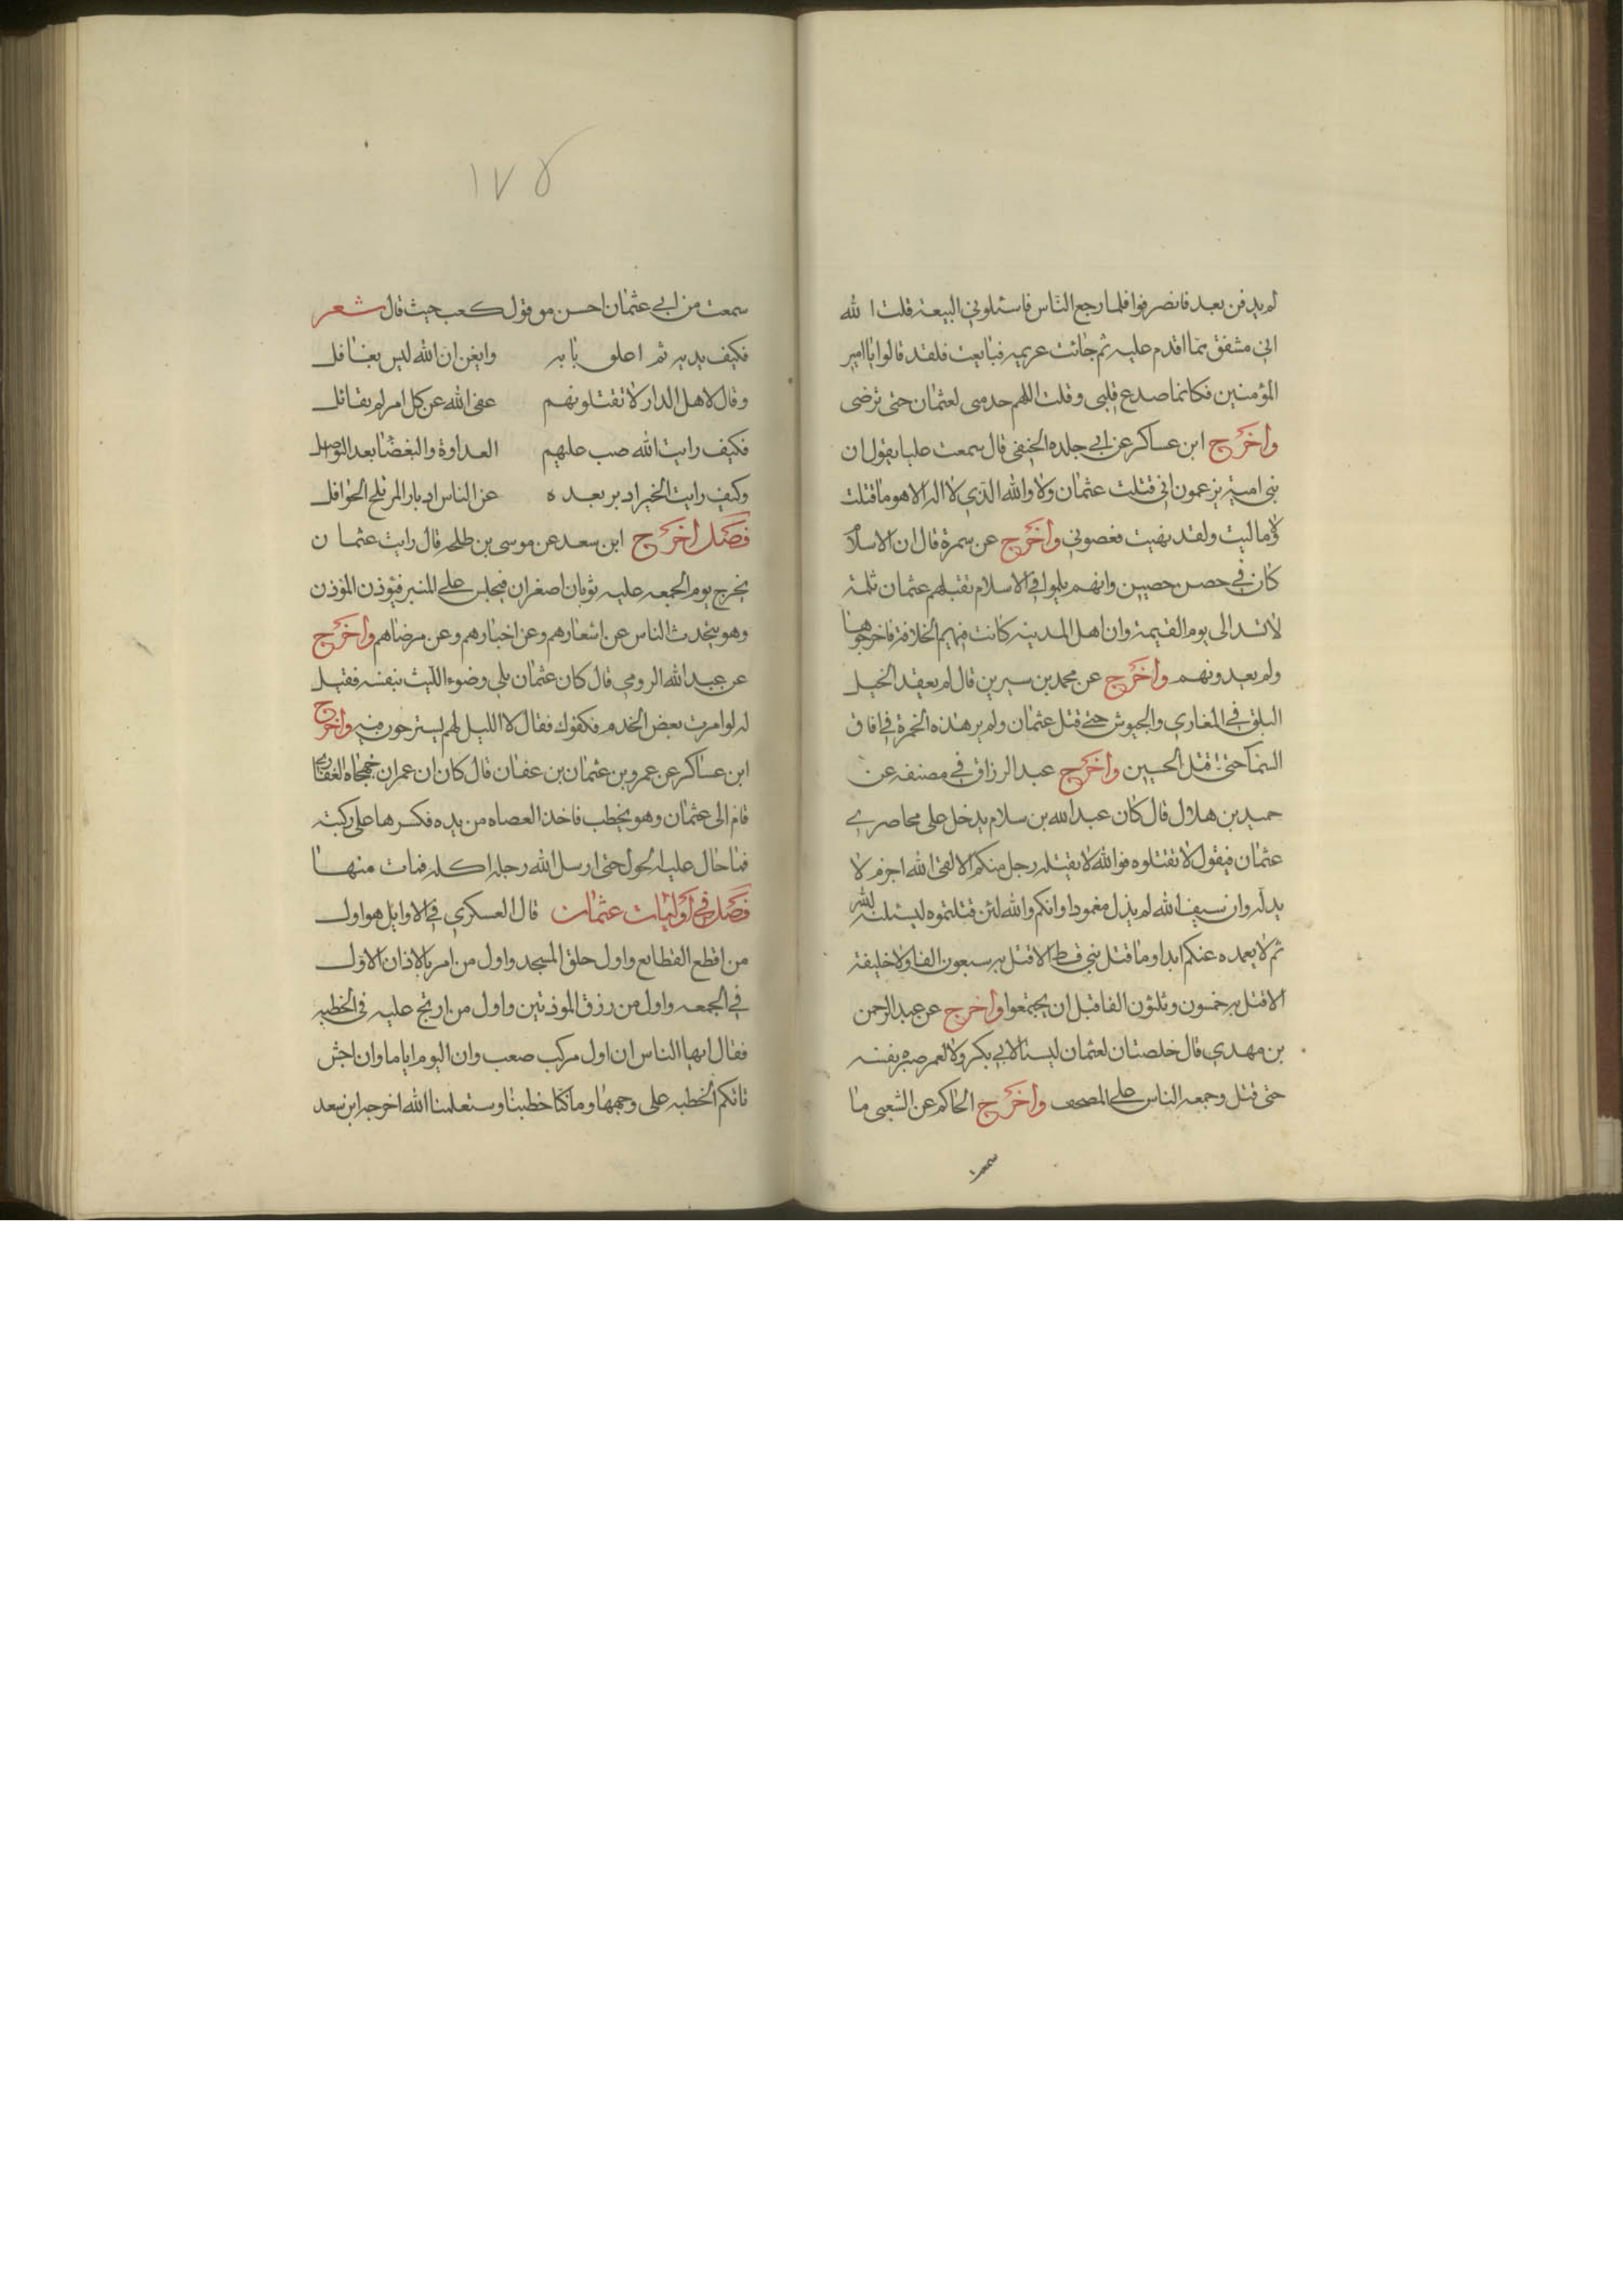 لم يدفن بعد فانصرفوا فلما رجع الناس فاسئلوني البيعة قلت الله
اني مشفق مما اقدم عليه ثم جائت عريمه فبايعت فلقد قالوا يا امير
المؤمنين فكانما صدع قلبي وقلت اللهم خد مني لعثمان حتى ترضى
واخرج ابن عساكر عن ابي جلده الحنفي قال سمعت عليا يقول ان
بني امية يزعمون اني قتلت عثمان ولا والله الذي لا اله الا هو ما قتلت
ولا ماليت ولقد نهيت فعصوني واخرج عن سمرة قال ان الاسلام
كان في حصن حصين وانهم ثلموا في الاسلام بقتلهم عثمان ثلمة
لا تسد الى يوم القيمة وان اهل المدينه كانت فيهم الخلافة فاخرجوها
ولم يعد ونهم واخرج عن محمد بن سيرين قال لم يعقد الخيل
البلق في المغازي والجيوش حتى قتل عثمان ولم ير هذه الحمرة في افاق
السمآ حتى قتل الحسين واخرج عبد الرزاق في مصنفه عن
حميد بن هلال قال كان عبد الله بن سلام يدخل على محاصري
عثمان فيقول لا تقتلوه فوالله لا يقتله رجل منكم الا لقى الله اجزم لا
يد له وان سيف الله لم يذل مغمودا وانكم والله لئن قتلتموه ليسلنه الله
ثم لا يعمده عنكم ابدا وما قتل نبي قط الا قتل به سبعون الفا ولا خليفة
الا قتل به خمسون وثلثون الفا قبل ان يجتمعوا واخرج عن عبد الرحمن
بن مهدي قال خلصتان لعثمان ليستا لابي بكر ولا لعمر صبره نفسه
حتى قتل وجمعه الناس على المصحف واخرج الحاكم عن الشعبي ما
سمعت
١٧٥
سمعت من ابي عثمان احسن مو قول كعب حيث قال شعر
فكيف يديه ثم اعلق بابه وايقن ان الله ليس بغافل
وقال لاهل الدار لا تقتلونهم عفى الله عن كل امر لم يقاتل
فكيف رايت الله صب عليهم العداوة والبغضا بعد التوصل
وكيف رايت الخير ادبر بعده عن الناس ادبار المر تلح الحوافل
فصل اخرج ابن سعد عن موسى بن طلحه قال رايت عثمان
يخرج يوم الجمعه عليه ثوبان اصفران فيجلس على المنبر فيؤذن المؤذن
وهو يتحدث الناس عن اشعارهم وعن اخبارهم وعن مرضاهم واخرج
عن عبد الله الرومي قال كان عثمان يلي وضوء الليث بنفسه فقيل
له لو امرت بعض الخدم فكفوك فقال لا الليل لهم يسترحون فيه واخرج
ابن عساكر عن عمرو بن عثمان بن عفان قال كان ان عمران جهجاه الغفاري
قام الى عثمان وهو يخطب فاخذ العصاه من يده فكسرها على ركبته
فما حال عليه الحول حتى ارسل الله رجله اكله فمات منها
فصل في اوليات عثمان قال العسكري في الاوايل هو اول
من اقطع القطايع واول حلق المسجد واول من امر بالاذان الاول
في الجمعه واول من رزق الموذنين واول من ارتج عليه في الخطبه
فقال ايها الناس ان اول مركب صعب وان اليوم اياما وان اجش
تاتكم الخطبه على وجهها وما كنا خطبا وستعلمنا الله اخرجه ابن سعد